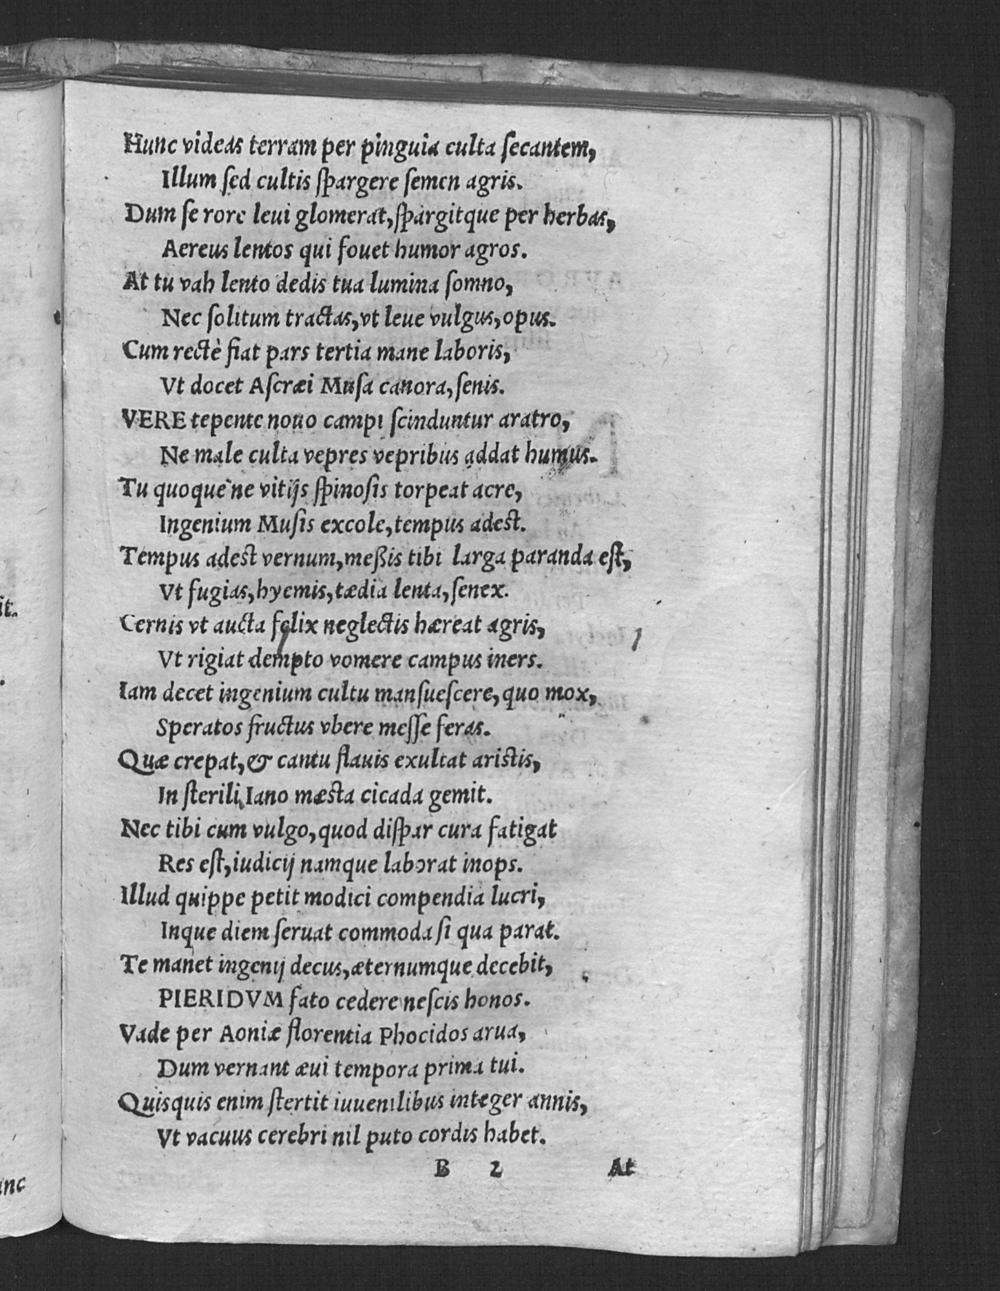 Hunc videas terram per pinguia culta ſecantem,
Illum ſed cultis ſpargere ſemen agris.
Dum ſe rore leui glomerat, ſpargitque per herbas,
Aereus lentos qui fouet humor agros.
At tu vah lento dedis tua lumina ſomno,
Nec ſolitum tractas, vt leue vulgus, opus.
Cum rectè fiat pars tertia mane laboris,
Vt docet Aſcræi Muſa canora, ſenis.
VERE tepente nouo campi ſcinduntur aratro,
Ne male culta vepres vepribus addat humus.
Tu quoque ne vitijs ſpinoſis torpeat acre,
Ingenium Muſis excole, tempus adest.
Tempus adest vernum, meßis tibi larga paranda eſt,
Vt fugias, hyemis, tædia lenta, ſenex.
Cernis vt aucta felix neglectis hæreat agris,
Vt rigiat dempto vomere campus iners.
Iam decet ingenium cultu manſueſcere, quo mox,
Speratos fructus vbere meſſe feras.
Quæ crepat, & cantu flauis exultat aristis,
In ſterili Iano mæsta cicada gemit.
Nec tibi cum vulgo, quod diſpar cura fatigat
Res eſt, iudicij namque laborat inops.
Illud quippe petit modici compendia lucri,
Inque diem ſeruat commoda ſi qua parat.
Te manet ingenij decus, æternumque decebit,
PIERIDVM fato cedere neſcis honos.
Vade per Aoniæ florentia Phocidos arua,
Dum vernant æui tempora prima tui.
Quisquis enim ſtertit iuuenilibus integer annis,
Vt vacuus cerebri nil puto cordis habet.
B 2 At